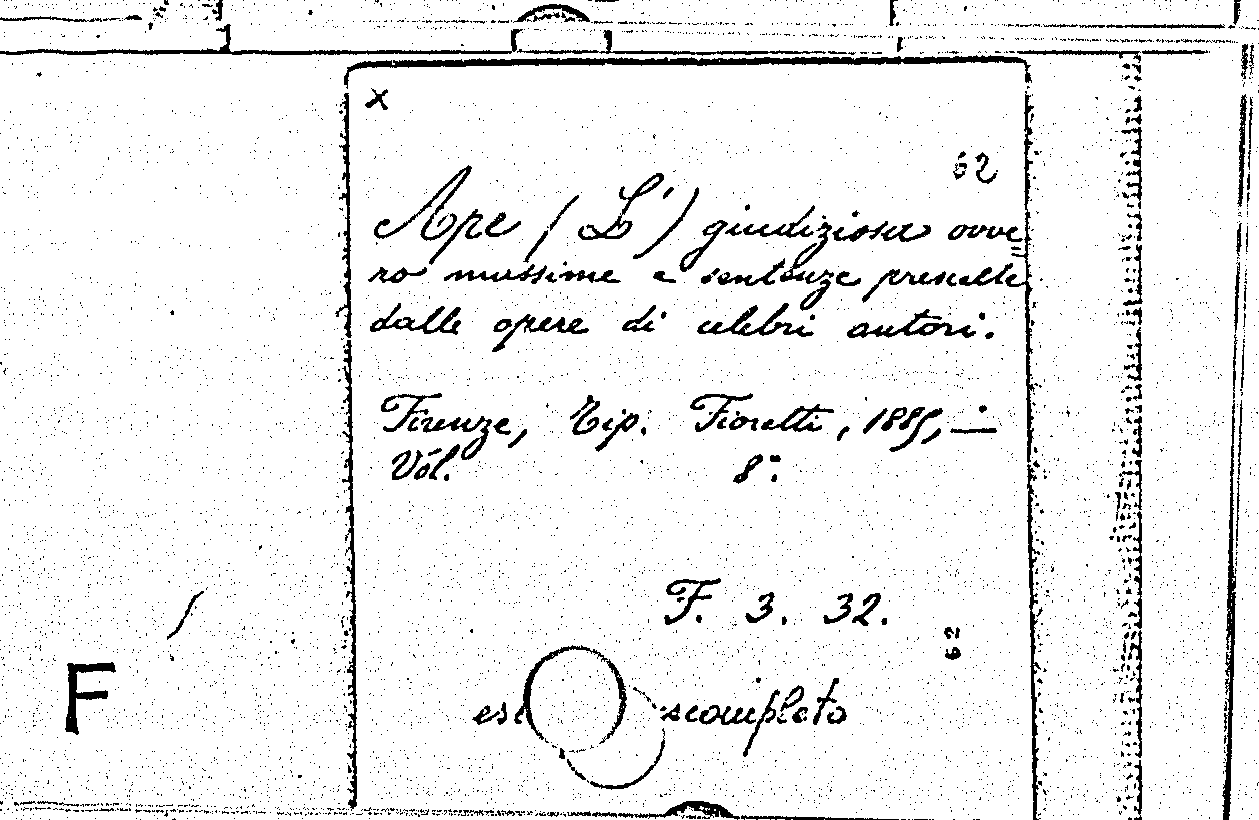 x
62
Ape (L') giudiziosa ovve
ro massime e sentenze prescelte
dalle opere di celebri autori.
Firenze, Tip. Fioretti, 1885, —
Vol. 8°.
F. 3. 32.
62
F
scompleto